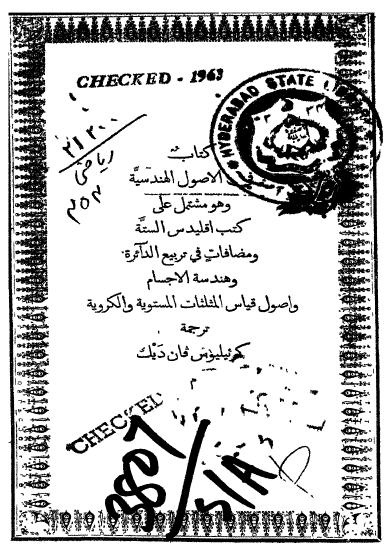 CHECKED - 1963
HYDERABAD STATE
٢١٢٠٠
رياضي
٢٥٣
كتاب
الاصول الهندسيَّة
وهو مشتمل على
كتب اقليدس الستَّة
ومضافات في تربيع الدآئرة
وهندسة الاجسام
واصول قياس المثلثات المستوية والكروية
ترجمة
كرنيليوس ڤان دَيْك
CHECKED